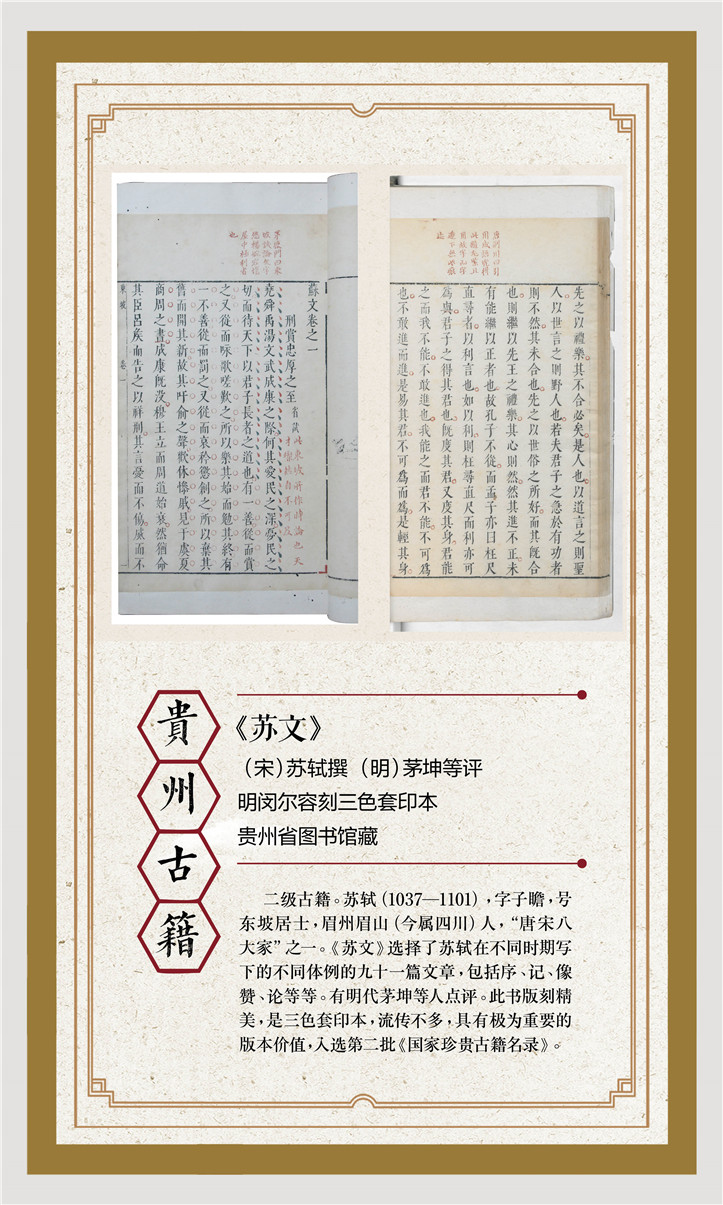 茅鹿門曰東
坡試論文字
悠揚宛宕塲
屋中極利者
也
蘇文卷之一
刑賞忠厚之至 省試 此東坡所作時論也天才燦然自不可及
堯舜禹湯文武成康之際何其愛民之深憂民之
切而待天下以君子長者之道也有一善從而賞
之又從而咏歌嗟歎之所以樂其始而勉其終有
一不善從而罰之又從而哀矜懲創之所以棄其
舊而開其新故其吁俞之聲歡休慘戚見于虞夏
商周之書成康既沒穆王立而周道始衰然猶命
其臣呂侯而告之以祥刑其言憂而不傷威而不
東坡 卷一
先之以禮樂其不合必矣是人也以道言之則聖
人以世言之則野人也若夫君子之急於有功者
則不然其未合也先之以世俗之所好而其既合
也則繼以先王之禮樂其心則然然其進不正未
有能繼以正者也故孔子不從而孟子亦曰枉尺
直尋者以利言也如以利則枉尋直尺而利亦可
為與君子之得其君也既度其君又度其身君能
之而我不能不敢進也我能之而君不能不可為
也不敢進而進是易其君不可為而為是輕其身
貴州古籍
《苏文》
（宋）苏轼撰（明）茅坤等评
明闵尔容刻三色套印本
贵州省图书馆藏
二级古籍。苏轼（1037—1101），字子瞻，号
东坡居士，眉州眉山（今属四川）人，“唐宋八
大家”之一。《苏文》选择了苏轼在不同时期写
下的不同体例的九十一篇文章，包括序、记、像
赞、论等等。有明代茅坤等人点评。此书版刻精
美，是三色套印本，流传不多，具有极为重要的
版本价值，入选第二批《国家珍贵古籍名录》。